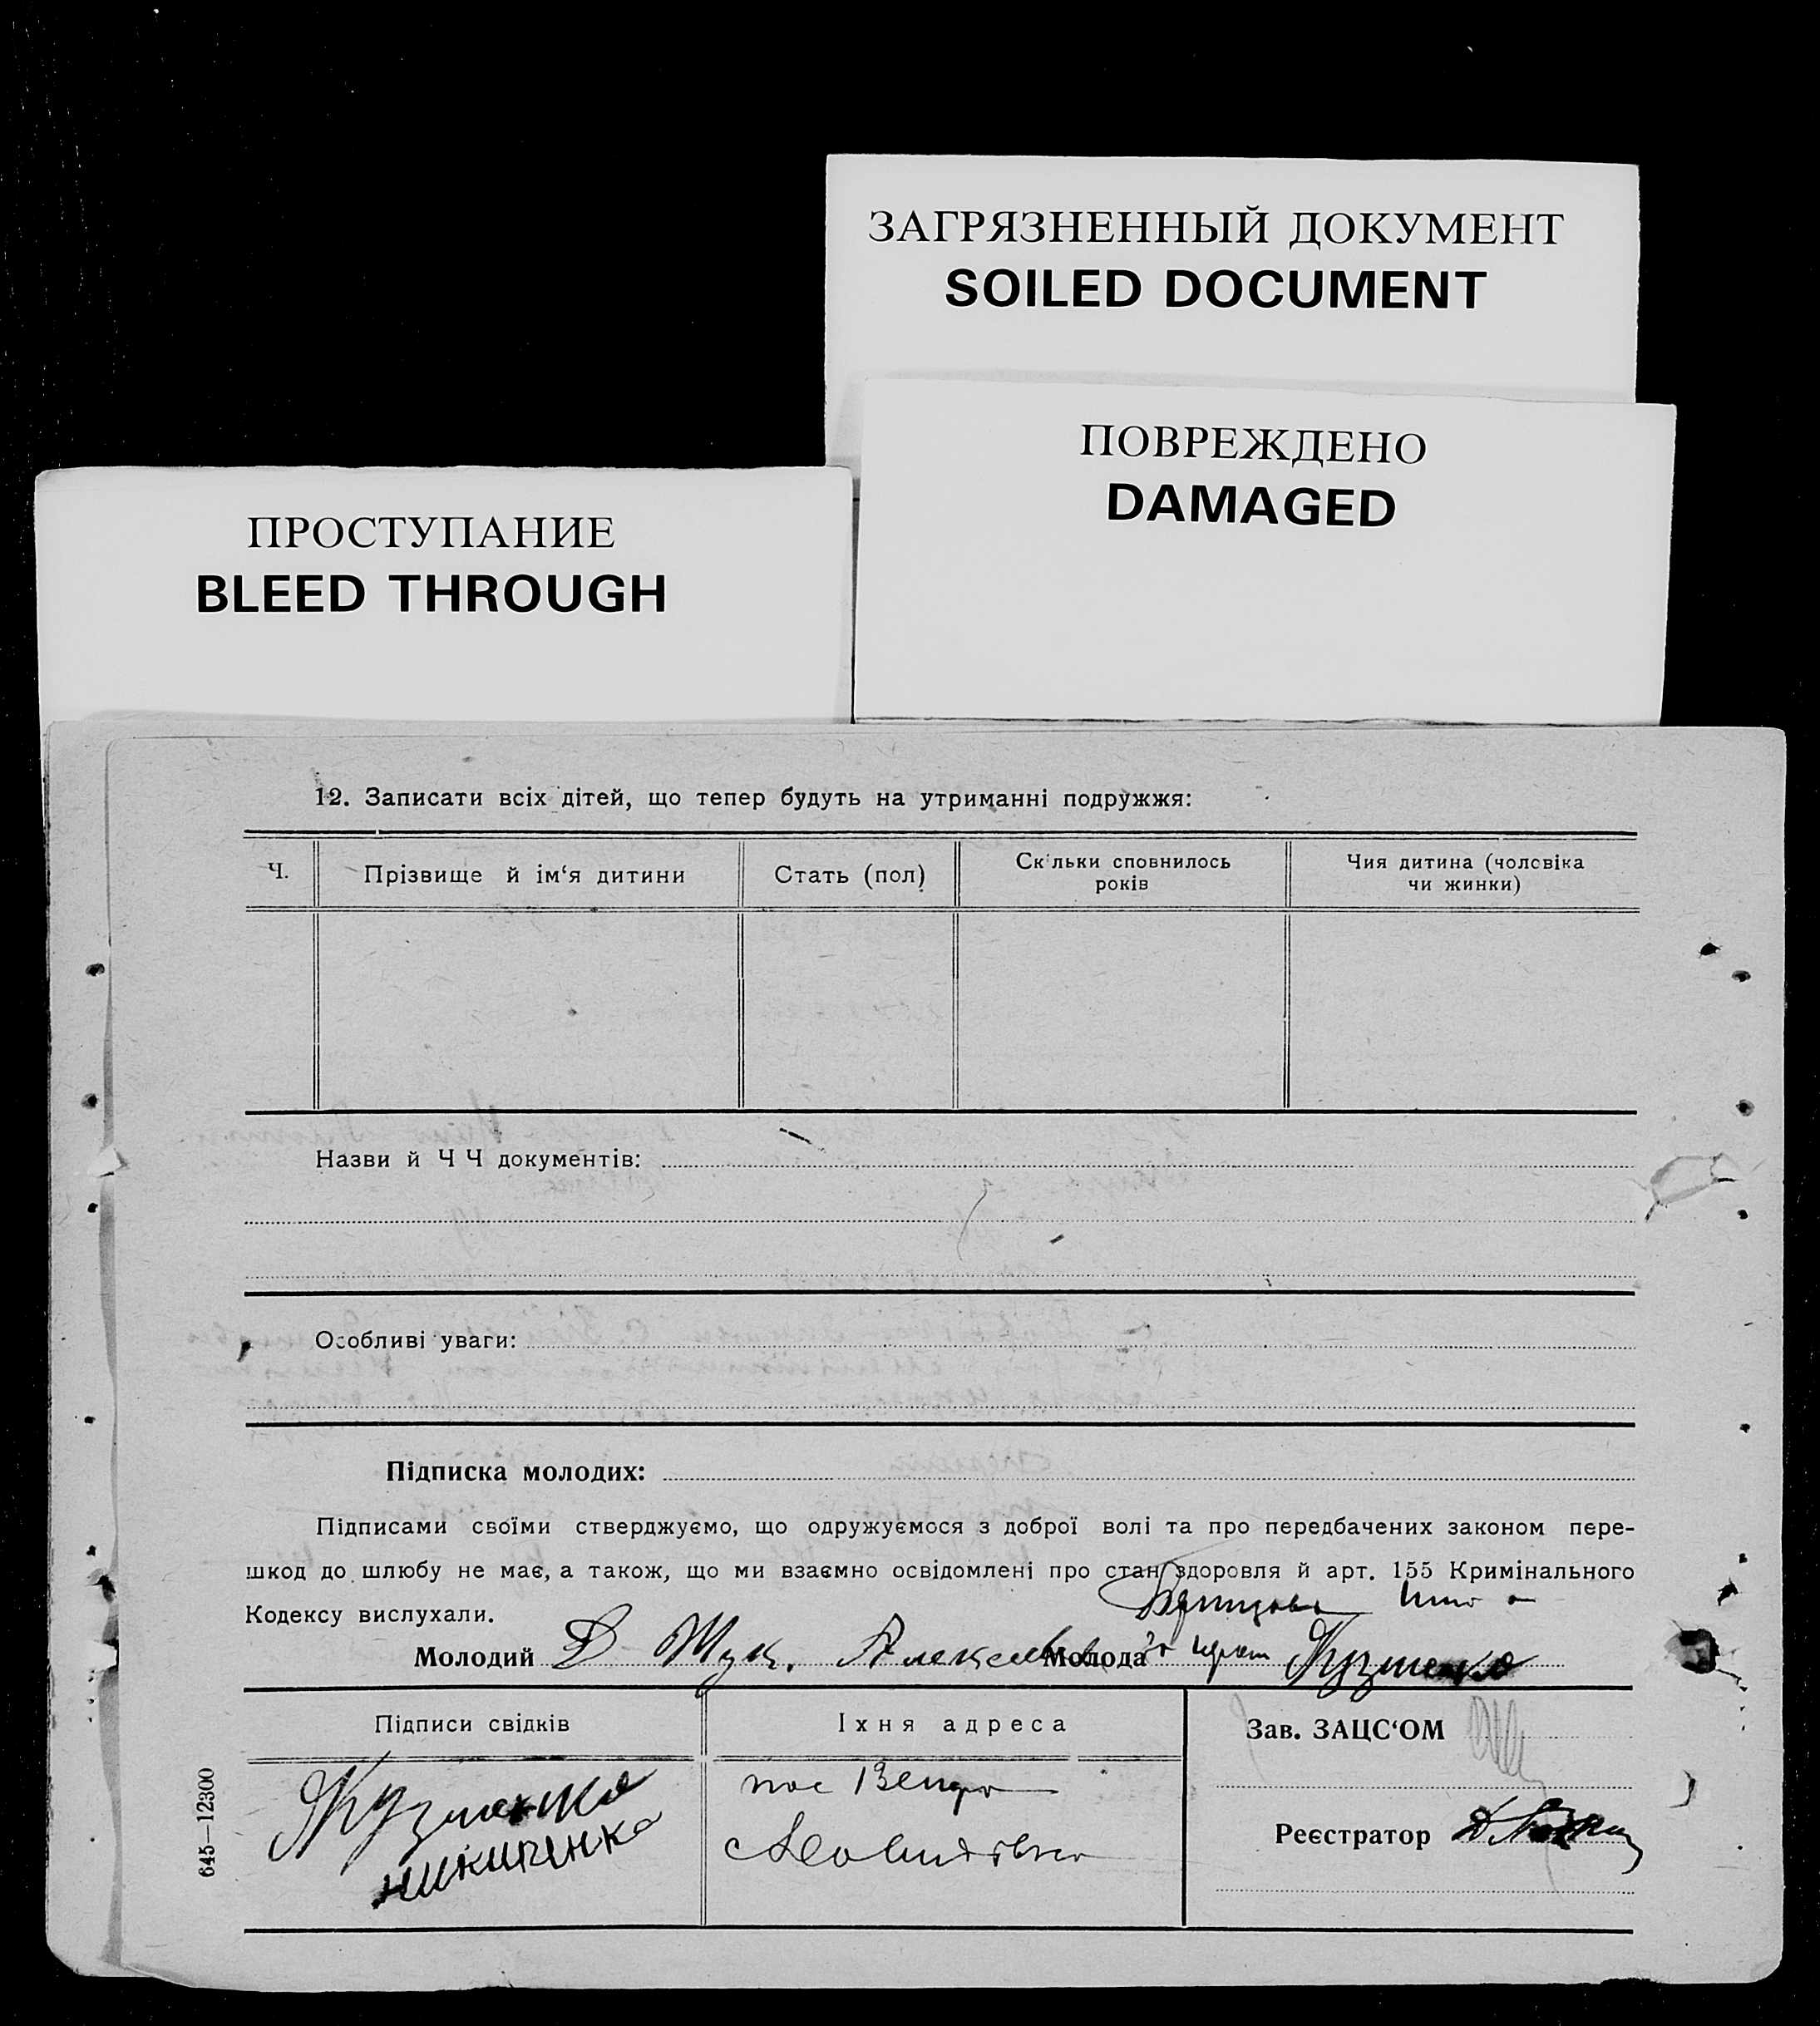 ЗАГРЯЗНЕННЫЙ ДОКУМЕНТ
SOILED DOCUMENT
ПОВРЕЖДЕНО
DAMAGED
ПРОСТУПАНИЕ
BLEED THROUGH
12. Записати всіх дітей, що тепер будуть на утриманні подружжя:
Ч.
Прізвище й ім‘я дитини
Стать (пол)
Скільки сповнилось
років
Чия дитина (чоловіка
чи жинки)
Назви й Ч Ч документів:
Особливі уваги:
Підписка молодих:
Підписами своїми стверджуємо, що одружуємося з доброї волі та про передбачених законом пере-
шкод до шлюбу не має, а також, що ми взаємно освідомлені про стан здоровля й арт. 155 Кримінального
Кодексу вислухали.
Молодий Д Жук. Молода Кузменко
Підписи свідків
Їхня адреса
Зав. ЗАЦС‘ОМ
Кузменко
никитенко
пос
Реєстратор
645—12300